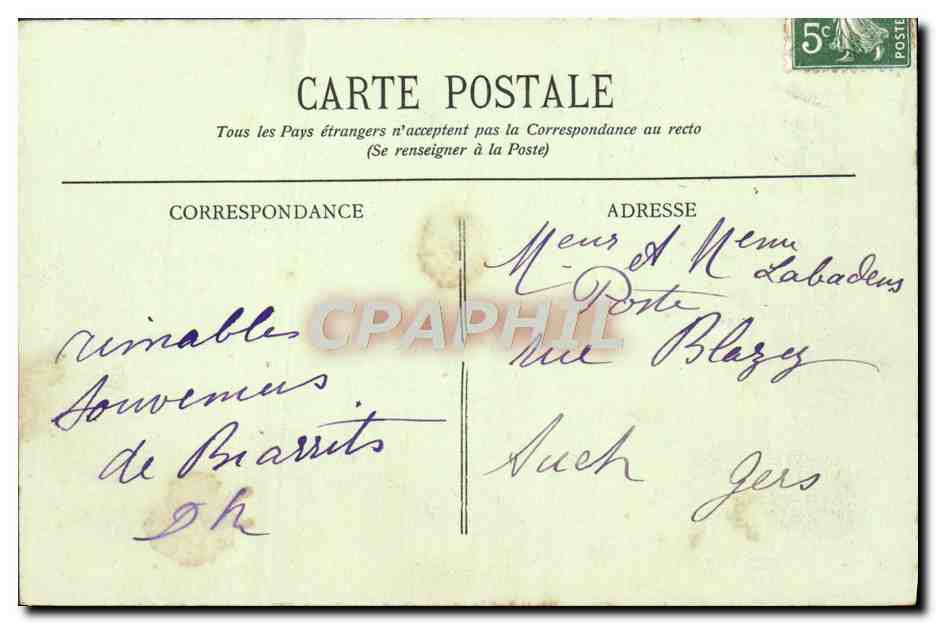 5c
POSTE
CARTE POSTALE
Tous les Pays étrangers n'acceptent pas la Correspondance au recto
(Se renseigner à la Poste)
CORRESPONDANCE
aimables
souvenirs
de Biarrits
ADRESSE
Meur et Mme
Labadens
Poste
rue Blazy
Auch Gers
CPAPHIL